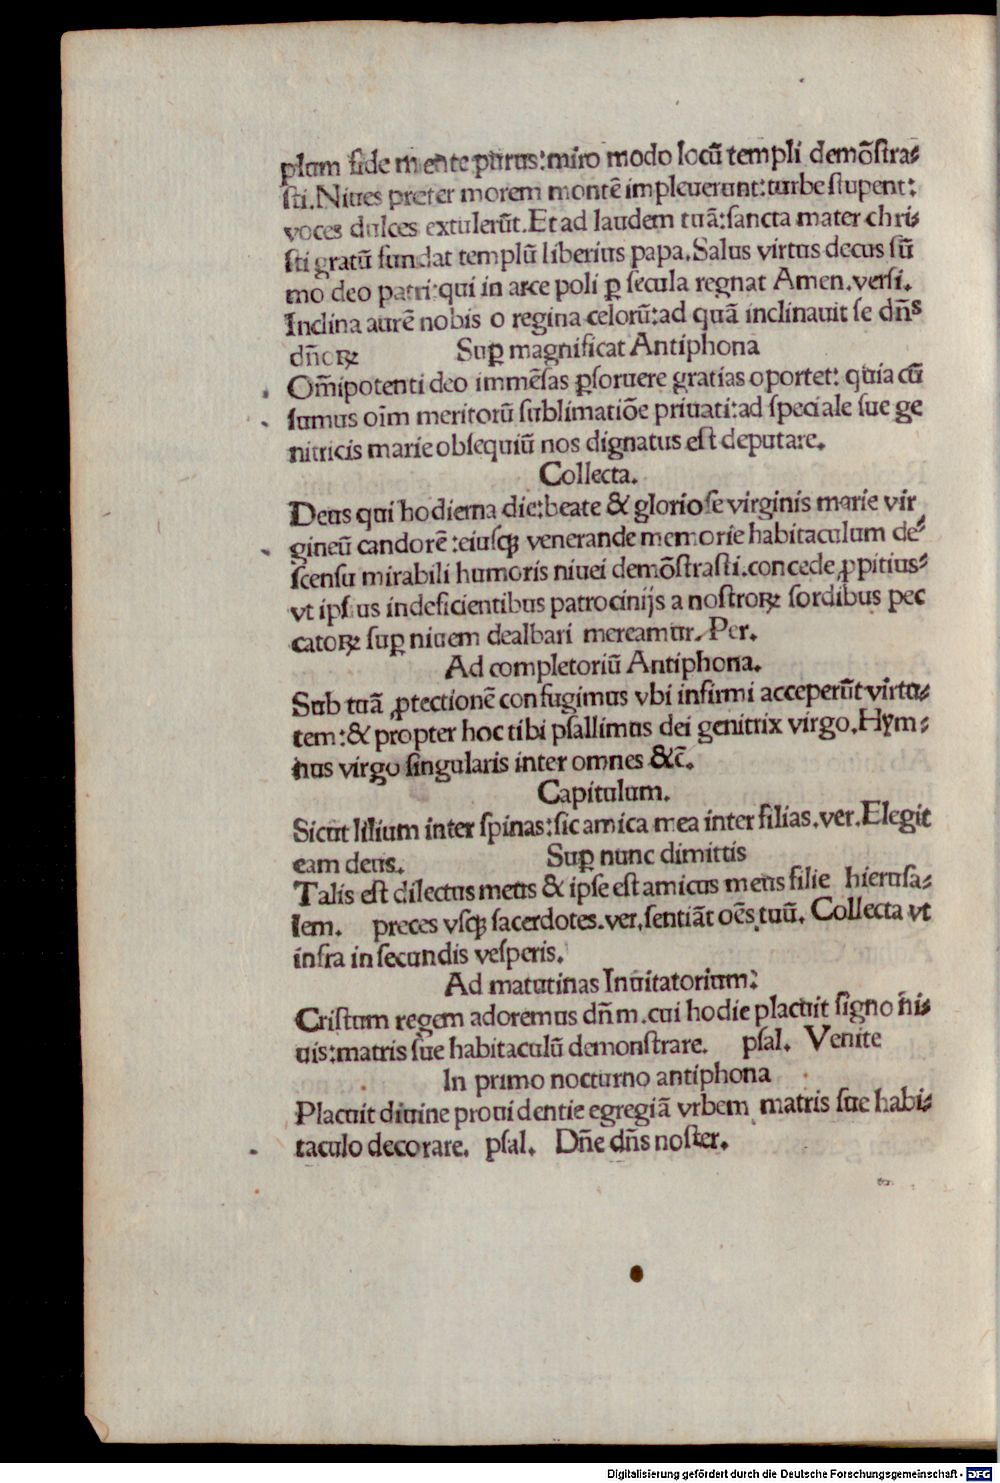 plum fide mente purus:miro modo locū templi demōſtra⸗
ſti.Niues preter morem montē impleuerunt:turbe ſtupent:
voces dulces extulerūt.Et ad laudem tuā:ſancta mater chri⸗
ſti gratū fundat templū liberius papa.Salus virtus decus ſū
mo deo patri:qui in arce poli ꝑ ſecula regnat Amen.verſi.
Inclina aurē nobis o regina celorū:ad quā inclinauit ſe dn̄s
dn̄oꝝ Suꝑ magnificat Antiphona
Om̄ipotenti deo immēſas ꝑſoluere gratias oportet: quia cū
ſumus oīm meritorū ſublimatiōe priuati:ad ſpeciale ſue ge
nitricis marie obſequiū nos dignatus eſt deputare.
Collecta.
Deus qui hodierna die:beate & glorioſe virginis marie vir
gineū candorē :eiuſqꝫ venerande memorie habitaculum de⸗
ſcenſu mirabili humoris niuei demōſtraſti.concede ꝓpitius⸗
vt ipſius indeficientibus patrocinijs a noſtroꝝ ſordibus pec
catoꝝ ſuꝑ niuem dealbari mereamur. Per.
Ad completoriū Antiphona.
Sub tuā ꝓtectionē confugimus vbi infirmi acceperūt virtu⸗
tem:& propter hoc tibi pſallimus dei genitrix virgo.Hym⸗
nus virgo ſingularis inter omnes &c̄.
Capitulum.
Sicut lilium inter ſpinas:ſic amica mea inter filias.ver.Elegit
eam deus. Suꝑ nunc dimittis
Talis eſt dilectus meus & ipſe eſt amicus meus filie hieruſa⸗
lem. preces vſqꝫ ſacerdotes.ver.ſentiāt oēs tuū. Collecta vt
infra in ſecundis veſperis.
Ad matutinas Inuitatorium:
Criſtum regem adoremus dn̄m.cui hodie placuit ſigno ni⸗
uis:matris ſue habitaculū demonſtrare. pſal. Venite
In primo nocturno antiphona
Placuit diuine prouidentie egregiā vrbem matris ſue habi⸗
taculo decorare. pſal. Dn̄e dn̄s noſter.
Digitalisierung gefördert durch die Deutsche Forschungsgemeinschaft - DFG